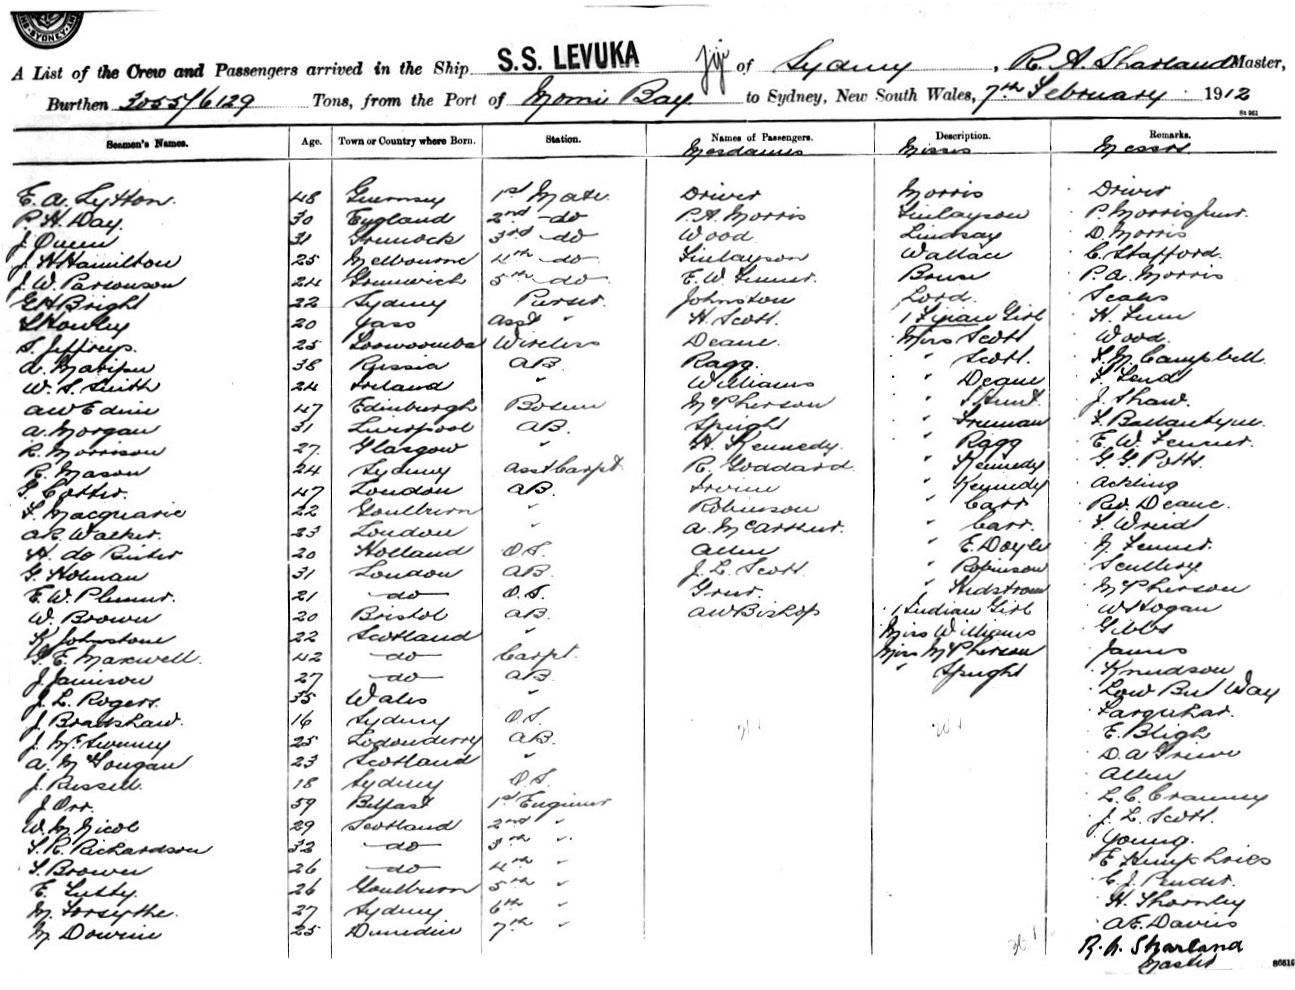 SYDNEY
S.S. LEVUKA
A List of the Crew and Passengers arrived in the Ship of Sydney, R. A. Sharland Master,
Burthen 3055/6129 Tons, from the Port of Bay to Sydney, New South Wales, 7th February 1912
St 961
Seamen's Names. Age. Town or Country where Born. Station. Names of Passengers. Description. Remarks.
Mesdames Misses Messrs.
E. A. Lytton. 48 Guernsey 1st Mate Driver Morris Driver
P. H. Day. 30 England 2nd do P. A. Morris Finlayson P. Morris Junr.
J. Owen 31 Greenock 3rd do Wood Lindsay D. Morris
J. H. Hamilton 25 Melbourne 4th do Finlayson Wallace C. Stafford.
J. W. Parkinson 24 Greenwich 5th do E. W. Fenner. P. A. Morris
G H Bright 22 Sydney Purser. Johnston Lord. Scales
20 Yass Asst " H. Scott. 1 Fijian Girl H.
S. Jeffreys. 25 Toowoomba Wireless Deane. Miss Scott Wood
38 Russia AB. Ragg. " Scott. F. M. Campbell.
W. S. Smith 24 Ireland " Williams " Deane
AW Edin 47 Edinburgh Bosun McPherson " Hunt. J. Shaw.
A. Morgan 31 Liverpool AB. Speight " Freeman F. Ballantyne.
R. Morrison 27 Glasgow " H. Kennedy. " Ragg E. W. Fenner.
R. Mason 24 Sydney Asst Carpt. R. Goddard. " Kennedy G. G. Potts.
Cotter. 47 London AB. Irvine " Kennedy Ackling
F. Macquarie 22 Goulburn " Robinson " Carr Rev Deane.
A R. Walker. 23 London " A. McArthur. " Carr.
H. de 20 Holland O.S. Allen " E. Doyle N. Fenner.
G. Holman 31 London AB. J. L. Scott. " Robinson
E. W. Plummer. 21 do O.S. Greer. " Hedstrom McPherson
W. Brown 20 Bristol AB. AW Bishop 1 Indian Girl W Hogan
K. Johnstone 22 Scotland " Miss Williams Gibbs
G. E. Maxwell. 42 do Carpt. Miss McPherson James
J. Jamison 27 do AB. " Speight Knudson
J. L. Rogers. 35 Wales " Low But Way
J. Bradshaw. 16 Sydney O.S. Farquhar.
J. McSweeney 25 Londonderry AB. E. Bligh
A. McGougan 23 Scotland " D. A Grieve
J. Russell. 18 Sydney O.S. Allen
J. Orr. 59 Belfast 1st Engineer L. C. Cranney
W. McNicol 29 Scotland 2nd " J. L. Scott.
S. R. Richardson 32 do 3rd " Young.
Brown 26 do 4th " E Humphries
E. Lutty. 26 Goulburn 5th " C. J. Pender.
M. Forsythe. 27 Sydney 6th " H. Thornley
M Downie 25 Dunedin 7th " A.E. Davies
R. A. Sharland
Master
S6519